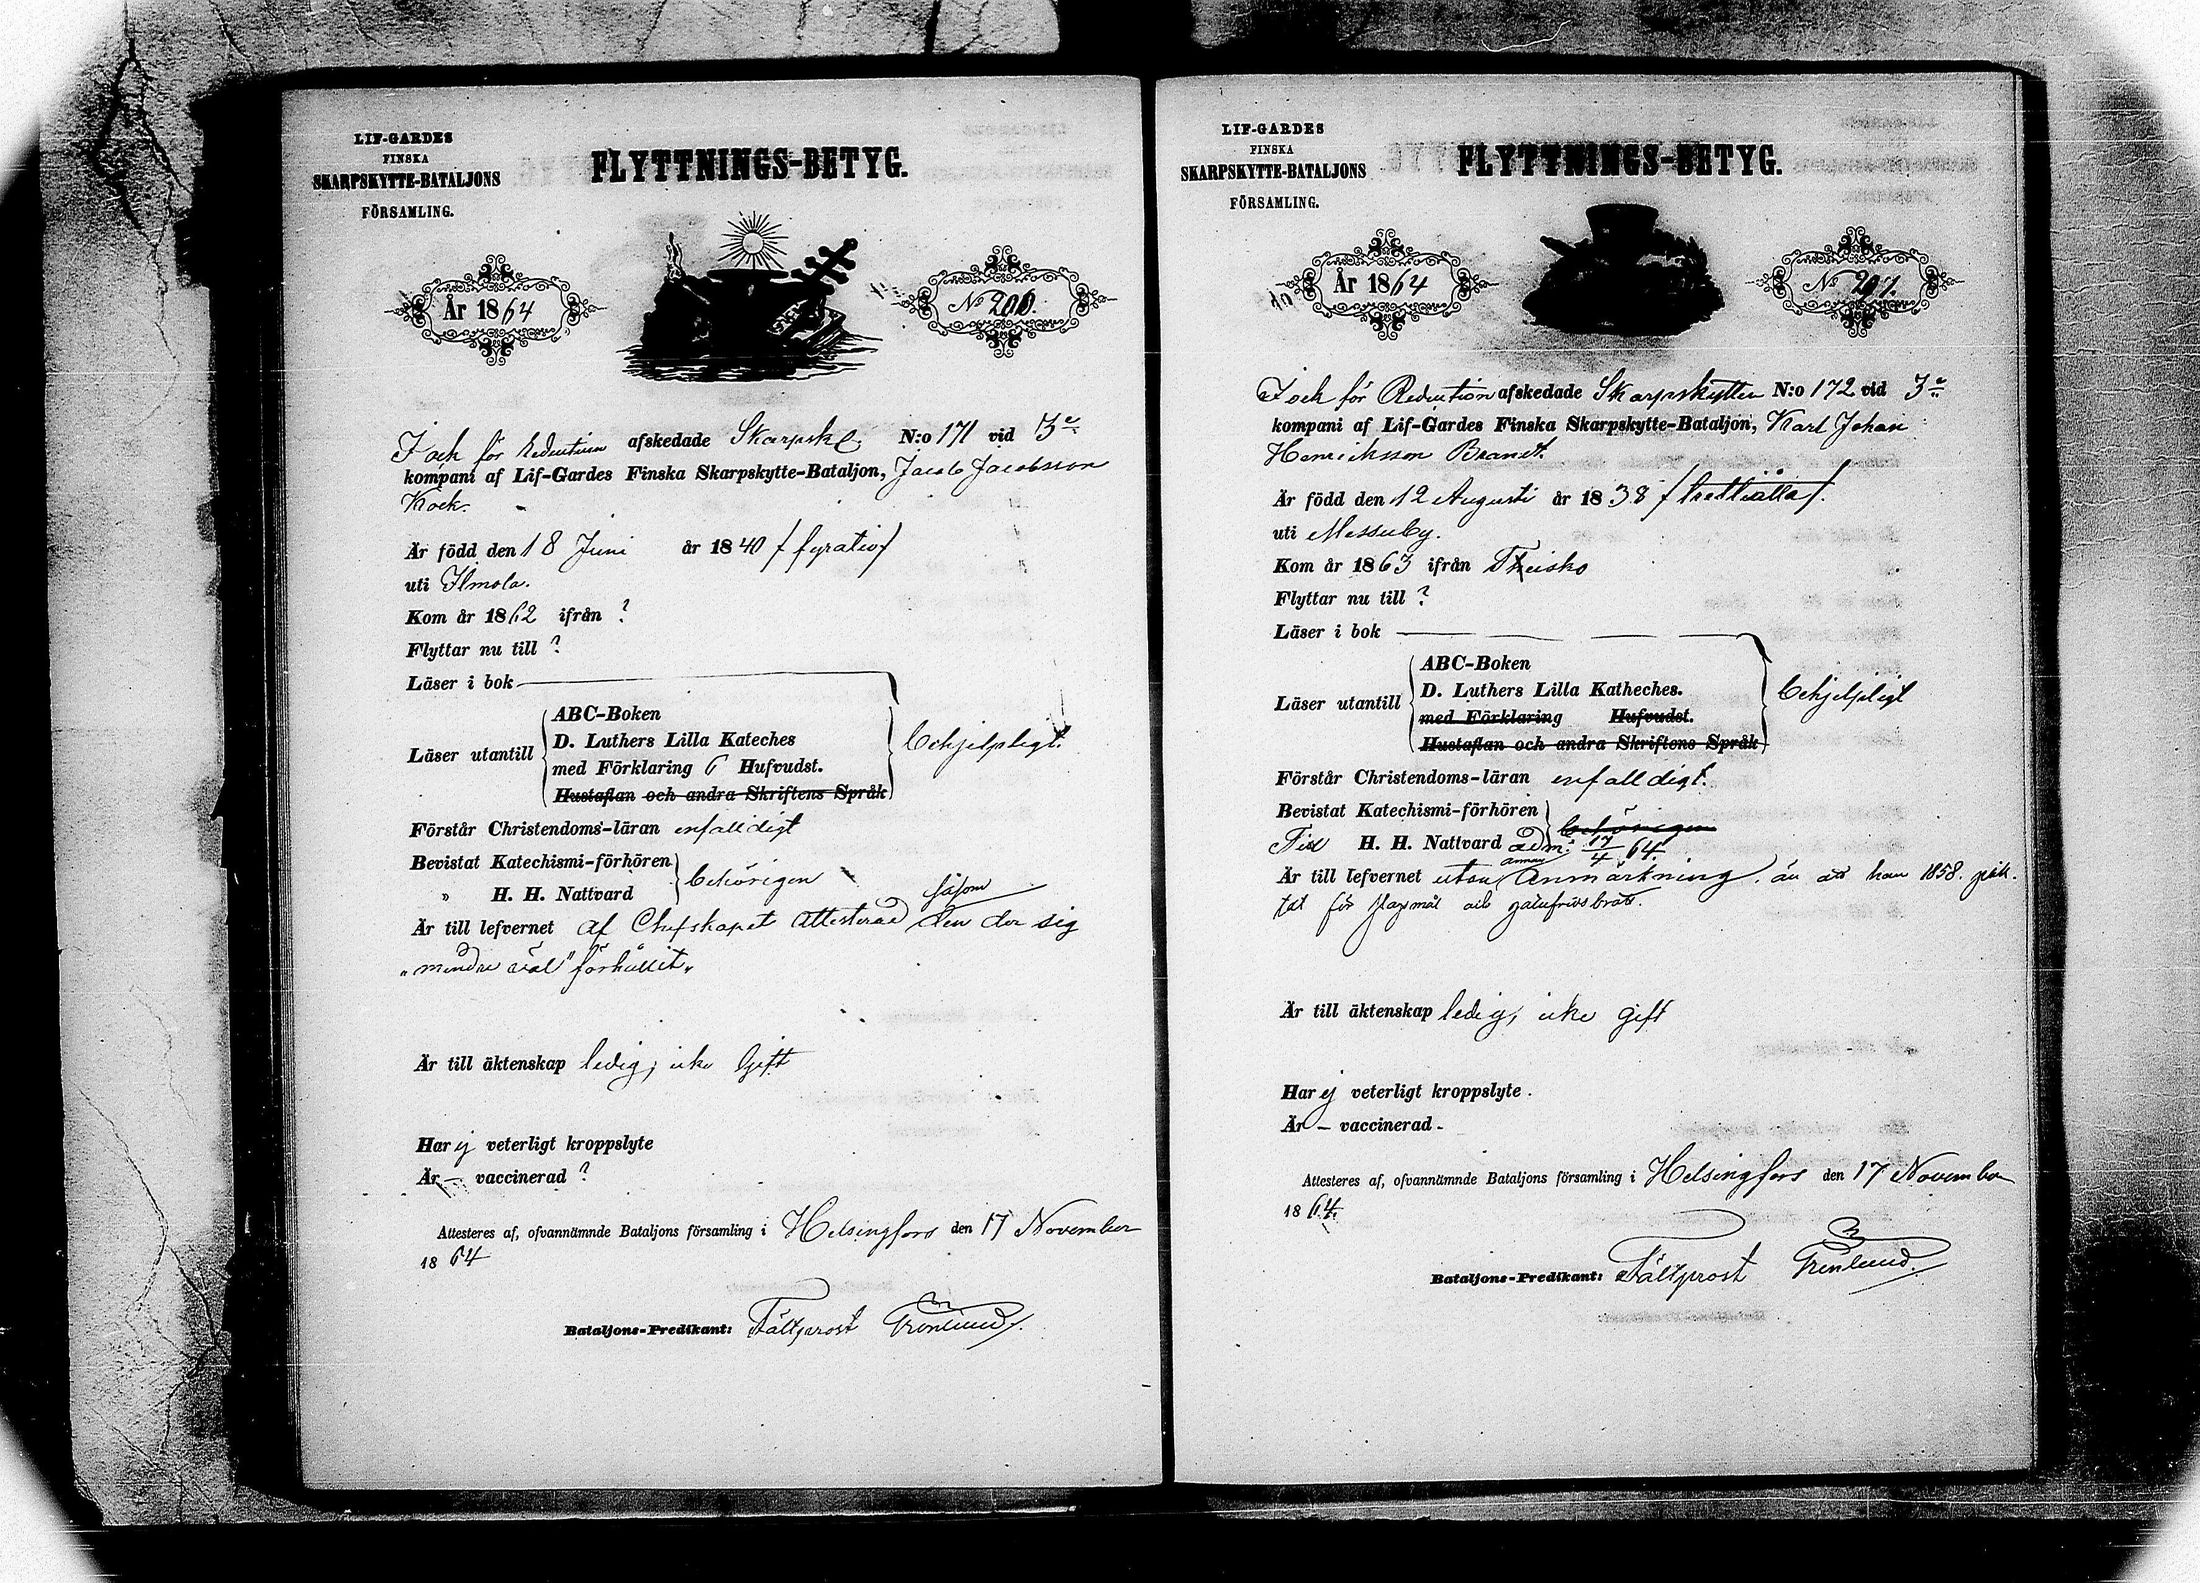 LIF-GARDES
FINSKA
SKARPSKYTTE-BATALJONS
FÖRSAMLING.
FLYTTNINGS-BETYG.
År 1864
No 206.
I och för Reduction afskedade Skarpsk. N:o 171 vid 3e
kompani af Lif-Gardes Finska Skarpskytte-Bataljon, Jacob Jacobsson
Kock.
Är född den 18 Juni år 1840 / fyratio /
uti Ilmola.
Kom år 1862 ifrån ?
Flyttar nu till ?
Läser i bok
Läser utantill
ABC-Boken
D. Luthers Lilla Kateches
med Förklaring 6 Hufvudst.
Hustaflan och andra Skriftens Språk
behjelpligt.
Förstår Christendoms-läran enfalldigt
Bevistat Katechismi-förhören
" H. H. Nattvard
behörigen
såsom
Är till lefvernet af Chefskapet attesterad den der sig
"mindre väl" förhållit"
Är till äktenskap ledig, icke gift
Har ej veterligt kroppslyte
Är – vaccinerad ?
Attesteres af, ofvannämnde Bataljons församling i Helsingfors den 17 November
1864
Bataljons-Predikant: Fältprost Grönlund.
LIF-GARDES
FINSKA
SKARPSKYTTE-BATALJONS
FÖRSAMLING.
FLYTTNINGS-BETYG.
År 1864
No 207.
I och för Reduction afskedade Skarpskytten N:o 172 vid 3e
kompani af Lif-Gardes Finska Skarpskytte-Bataljon, Karl Johan
Henriksson Brandt.
Är född den 12 Augusti år 1838 / trettiåtta /.
uti Messuby.
Kom år 1863 ifrån Teisko
Flyttar nu till ?
Läser i bok
Läser utantill
ABC-Boken
D. Luthers Lilla Katheches.
med Förklaring Hufvudst.
Hustaflan och andra Skriftens Språk
behjelpligt
Förstår Christendoms-läran enfalldigt.
Bevistat Katechismi-förhören
behörigen
Till H. H. Nattvard adm. 17/4 64.
annan
Är till lefvernet utan anmärkning, än att han 1858. plik-
tat för slagsmål och gatufridsbrott.
Är till äktenskap ledig, icke gift
Har ej veterligt kroppslyte.
Är – vaccinerad -
Attesteres af, ofvannämnde Bataljons församling i Helsingfors den 17 November
1864.
Bataljons-Predikant: Fältprost Grönlund.